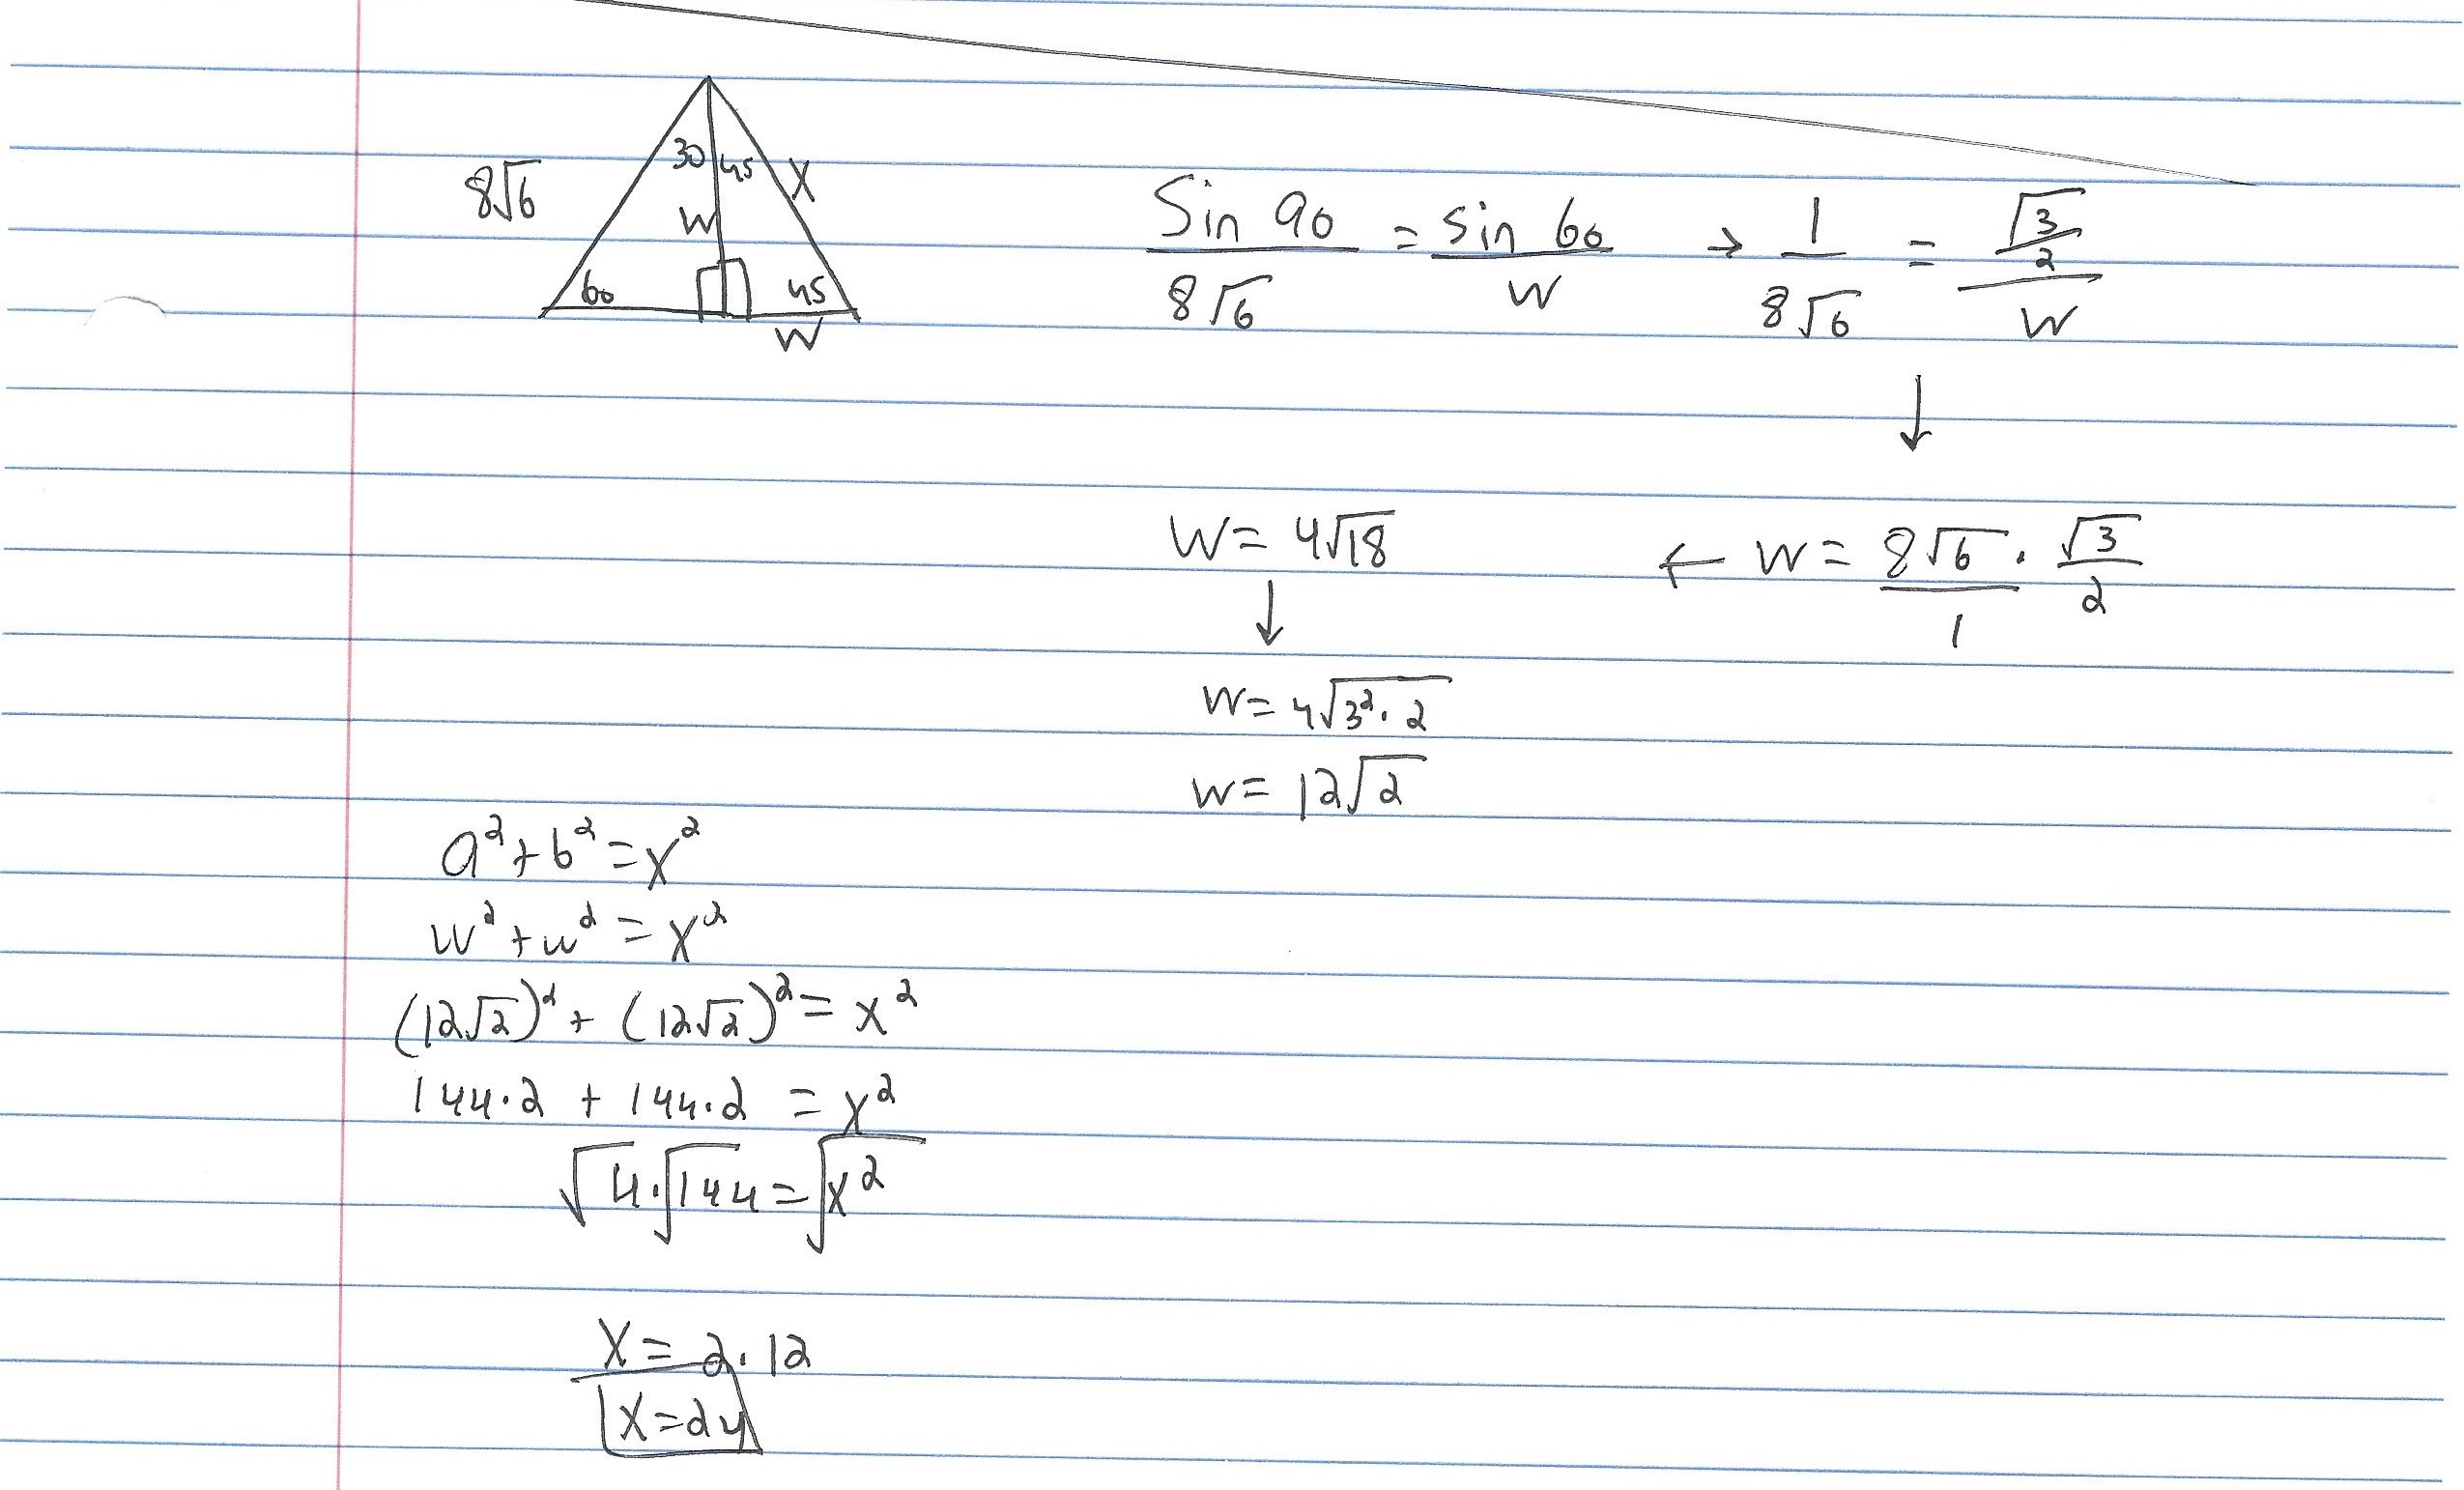 8√6
30
45
X
W
60
45
W
Sin 90/8√6 = sin 60/W → 1/8√6 = (√3/2)/W
↓
W = 4√18 ← W = 8√6/1 · √3/2
↓
W = 4√(3²·2)
W = 12√2
a² + b² = x²
W² + W² = X²
(12√2)² + (12√2)² = x²
144·2 + 144·2 = x²
√4·√144 = √x²
X = 2·12
X = 24